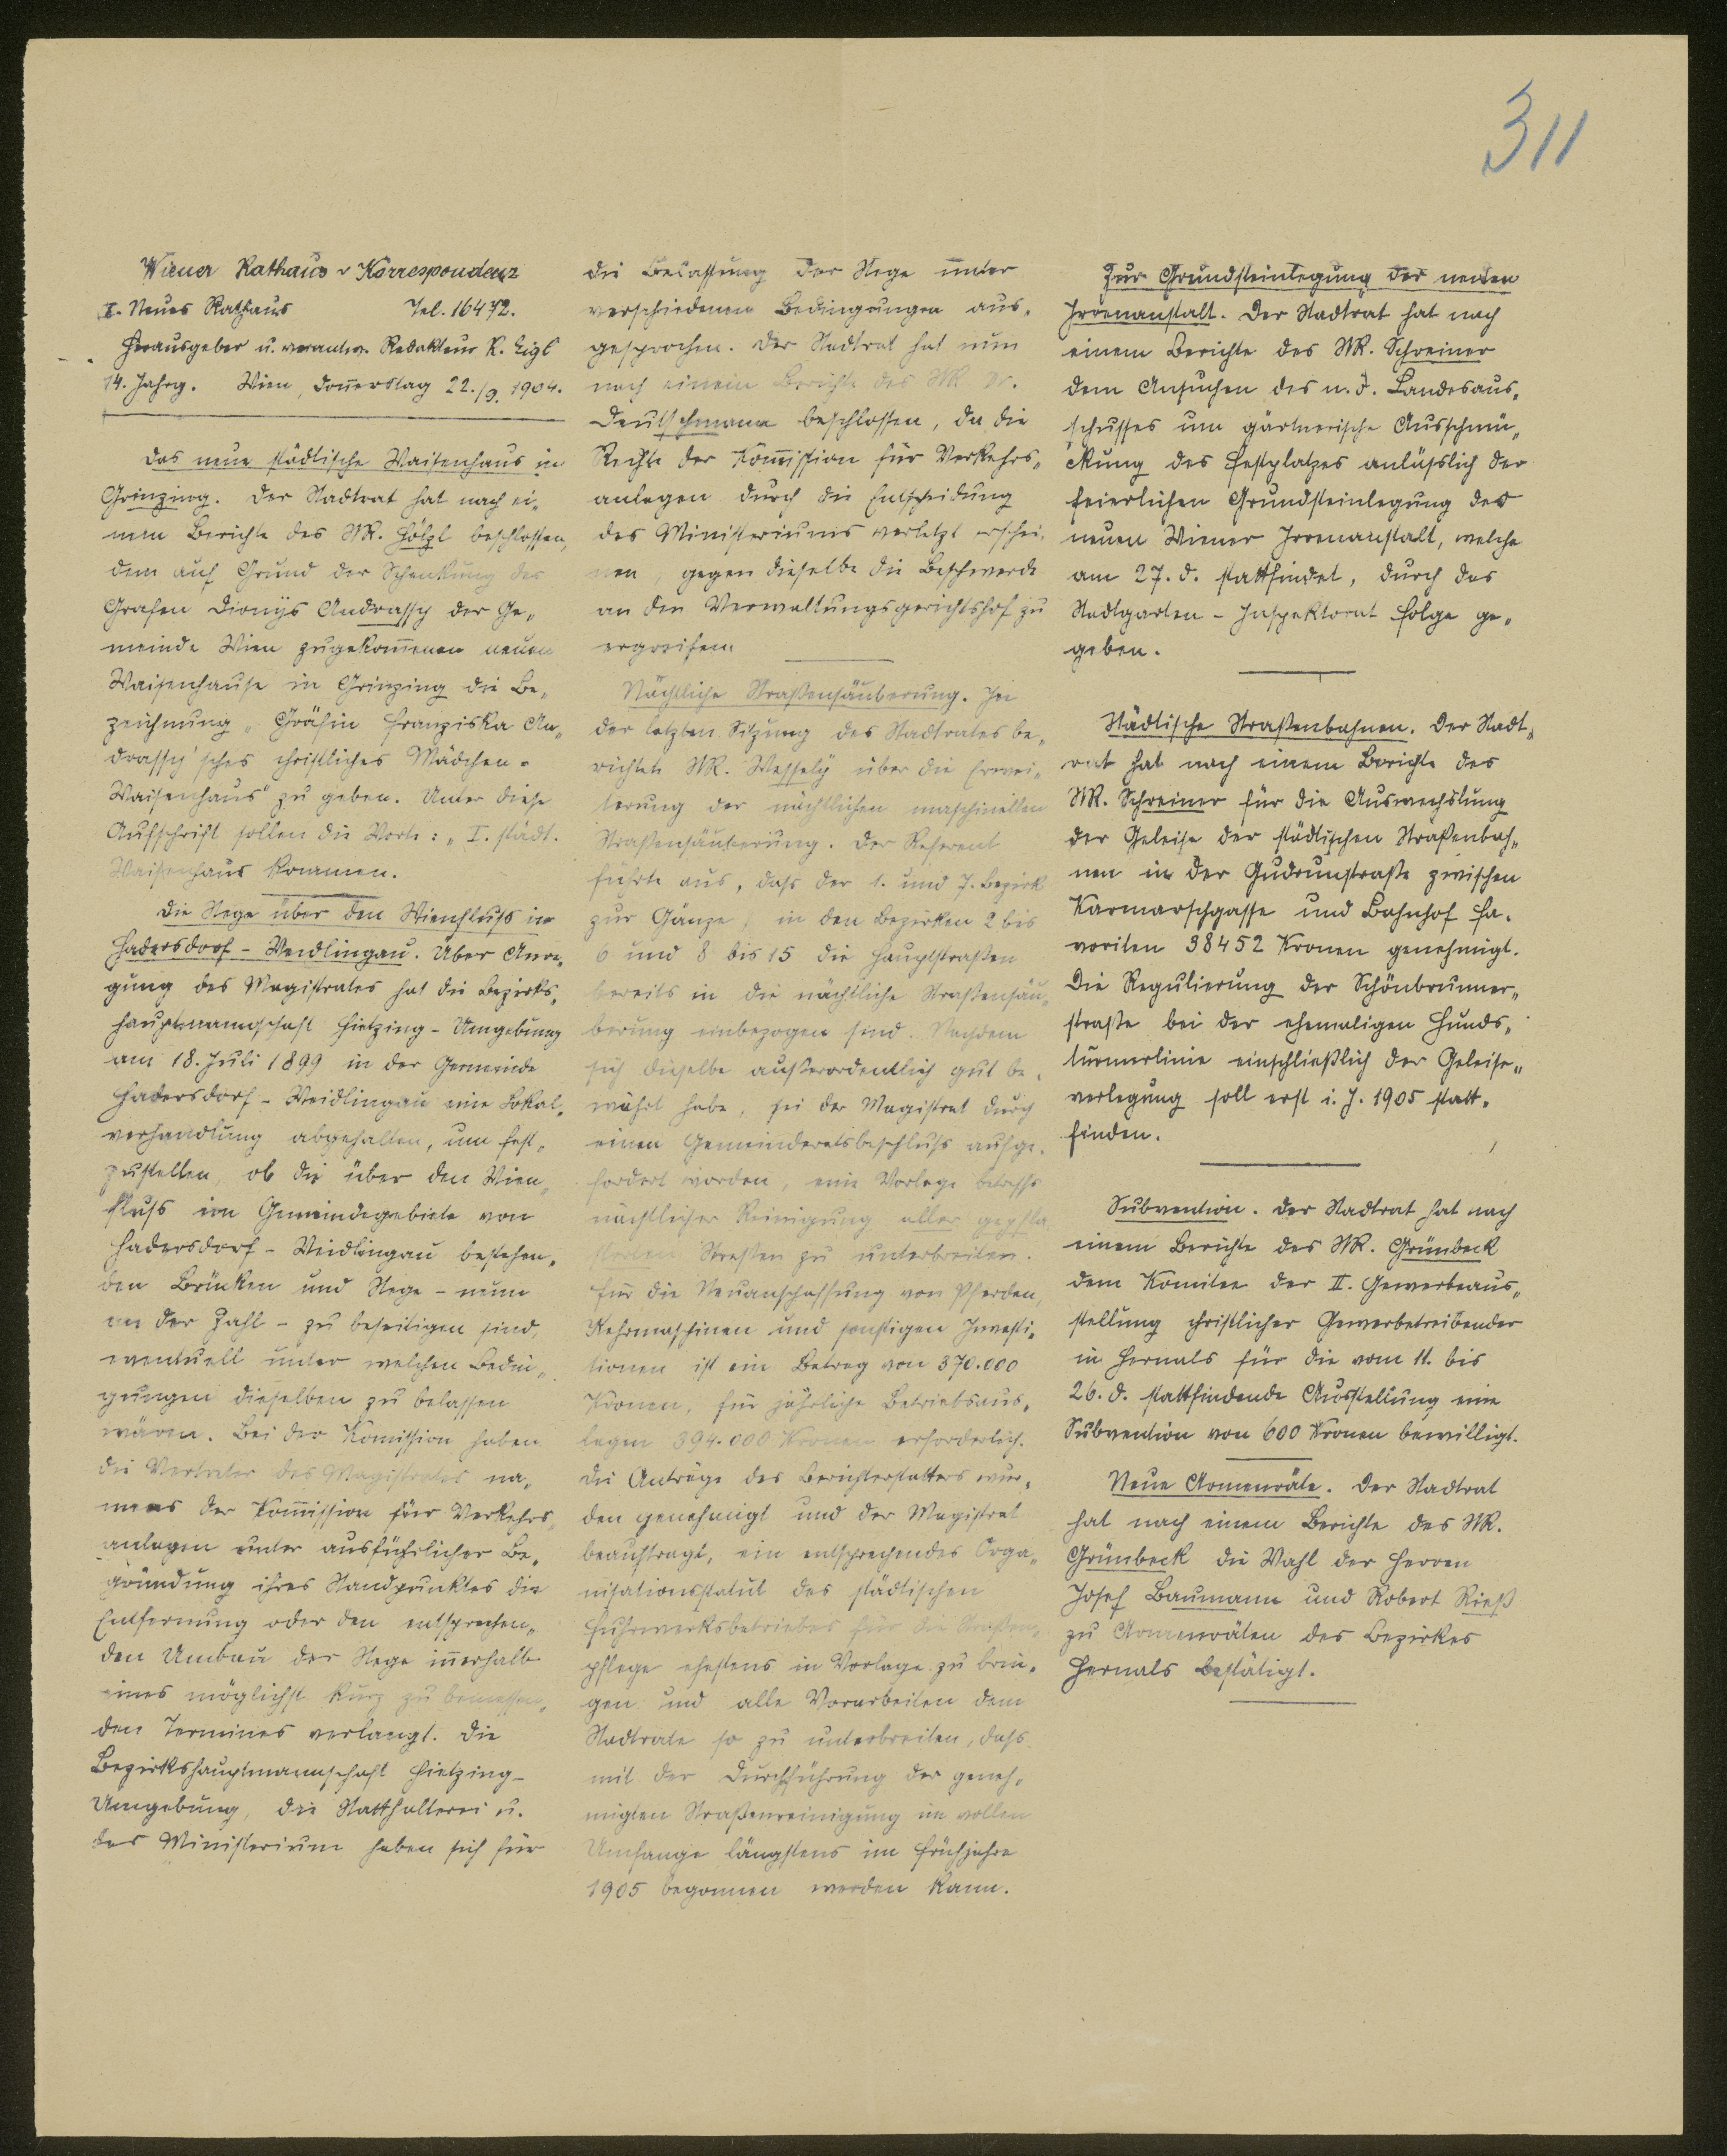 311
Wiener Rathaus-Korrespondenz
I. Neues Rathaus Tel. 16472.
Herausgeber u. verantw. Redakteur R. Eigl
14. Jahrg. Wien, Donnerstag 22./9. 1904.
Das neue städtische Waisenhaus in
Grinzing. Der Stadtrat hat nach ei„
nem Berichte des StR. Hölzl beschlossen,
dem auf Grund der Schenkung des
Grafen Dionys Andrassy der Ge„
meinde Wien zugekom̄enen neuen
Waisenhause in Grinzing die Be„
zeichnung „Gräfin Franziska An„
drassy'sches christliches Mädchen-
Waisenhaus" zu geben. Unter diese
Aufschrift sollen die Worte: „I. städt.
Waisenhaus kommen.
Die Stege über den Wienfluss in
Hadersdorf-Weidlingau. Über Anre„
gung des Magistrates hat die Bezirks„
hauptmannschaft Hietzing-Umgebung
am 18. Juli 1899 in der Gemeinde
Hadersdorf-Weidlingau eine Lokal„
verhandlung abgehalten, um fest„
zustellen, ob die über den Wien„
fluss im Gemeindegebiete von
Hadersdorf-Weidlingau bestehen„
den Brücken und Stege - neun
an der Zahl - zu beseitigen sind,
eventuell unter welchen Bedin„
gungen dieselben zu belassen
wären. Bei der Kom̄ission haben
die Vertreter des Magistrates na„
mens der Kom̄ission für Verkehrs„
anlagen unter ausführlicher Be„
gründung ihres Standpunktes die
Entfernung oder den entsprechen„
den Umbau der Stege in̄erhalb
eines möglichst kurz zu bemessen„
den Termines verlangt. Die
Bezirkshauptmannschaft Hietzing-
Umgebung, die Statthalterei u.
das Ministerium haben sich für
die Belassung der Stege unter
verschiedenen Bedingungen aus„
gesprochen. Der Stadtrat hat nun
nach einem Berichte des StR Dr.
Deutschmann beschlossen, da die
Rechte der Kom̄ission für Verkehrs„
anlagen durch die Entscheidung
des Ministeriums verletzt erschei„
nen, gegen dieselbe die Beschwerde
an den Verwaltungsgerichtshof zu
ergreifen.
Nächtliche Straßensäuberung. In
der letzten Sitzung des Stadtrates be„
richtete StR. Wessely über die Erwei„
terung der nächtlichen maschinellen
Straßensäuberung. Der Referent
führte aus, dass der 1. und 7. Bezirk
zur Gänze, in den Bezirken 2 bis
6 und 8 bis 15 die Hauptstraßen
bereits in die nächtliche Straßensäu„
berung einbezogen sind. Nachdem
sich dieselbe außerordentlich gut be„
währt habe, sei der Magistrat durch
einen Gemeinderatsbeschluss aufge„
fordert worden, eine Vorlage betreffs
nächtlicher Reinigung aller gepfla„
sterten Straßen zu unterbreiten.
Für die Neuanschaffung von Pferden,
Kehrmaschinen und sonstigen Investi„
tionen ist ein Betrag von 370.000
Kronen, für jährliche Betriebsaus„
lagen 394.000 Kronen erforderlich.
Die Anträge des Berichterstatters wur„
den genehmigt und der Magistrat
beauftragt, ein entsprechendes Orga„
nisationsstatut des städtischen
Fuhrwerksbetriebes für die Straßen„
pflege ehestens in Vorlage zu brin„
gen und alle Vorarbeiten dem
Stadtrate so zu unterbreiten, dass
mit der Durchführung der geneh„
migten Straßenreinigung im vollen
Umfange längstens im Frühjahre
1905 begonnen werden kann.
Zur Grundsteinlegung der neuen
Irrenanstalt. Der Stadtrat hat nach
einem Berichte des StR. Schreiner
dem Ansuchen des n.ö. Landesaus„
schusses um gärtnerische Ausschmü„
ckung des Festplatzes anlässlich der
feierlichen Grundsteinlegung der
neuen Wiener Irrenanstalt, welche
am 27. d. stattfindet, durch das
Stadtgarten-Inspektorat Folge ge„
geben.
Städtische Straßenbahnen. Der Stadt„
rat hat nach einem Berichte des
StR. Schreiner für die Auswechslung
der Geleise der städtischen Straßenbah„
nen in der Gudrunstraße zwischen
Karmarschgasse und Bahnhof Fa„
voriten 38452 Kronen genehmigt.
Die Regulierung der Schönbrunner„
straße bei der ehemaligen Hunds„
turmerlinie einschließlich der Geleise„
verlegung soll erst i. J. 1905 statt„
finden.
Subvention. Der Stadtrat hat nach
einem Berichte des StR. Grünbeck
dem Komitee der II. Gewerbeaus„
stellung christlicher Gewerbetreibender
in Hernals für die vom 11. bis
26. d. stattfindende Ausstellung eine
Subvention von 600 Kronen bewilligt.
Neue Armenräte. Der Stadtrat
hat nach einem Berichte des StR.
Grünbeck die Wahl der Herren
Josef Baumann und Robert Rieß
zu Armenräten des Bezirkes
Hernals bestätigt.